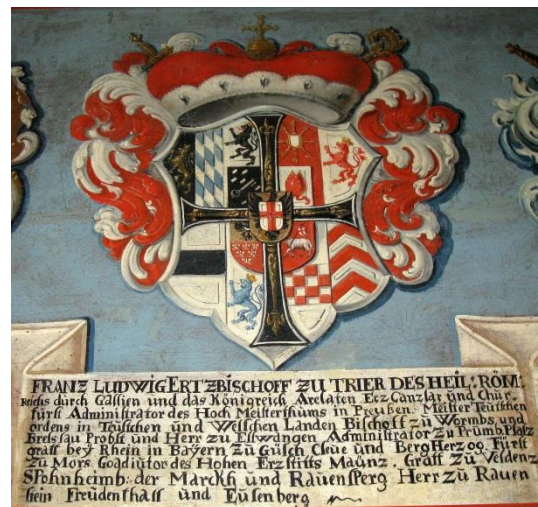 FRANZ LUDWIG ERTZBISCHOFF ZU TRIER DES HEIL: RÖM:
Reichs durch Gallien und das Königreich Arelaten Ecz Canzlar und Chur,
fürst Administrator des Hoch Meisterthums in Preußen Meister Teütschen
ordens in Teütschen und Welschen Landen Bischoff zu Wormbs, und
Breslau Probst und Herr zu Elswangen Administrator zu Prümb Pfoltz
graff bey Rhein in Bayern zu Gülch Cleüe und Berg Herzog Fürst
zu Mörs Coadiütor des Hohen Erzstiffts Maÿnz. Graff zu Veldenz
SPohnheimb: der Marckh und RauensPerg Herr zu Rauen
stein Freüdenthall und Eüsenberg